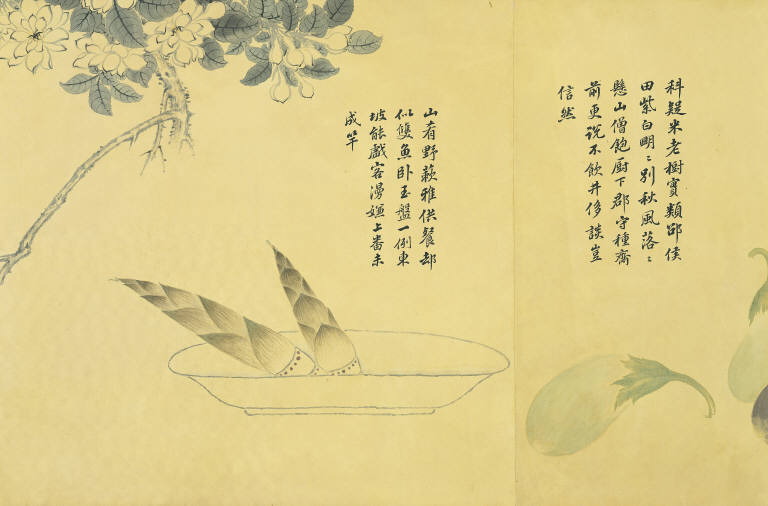 科疑米老樹實類邵侯
田紫白明〻別秋風落〻
懸山僧飽厨下郡守種齋
前更說不飲井侈談豈
信然
山肴野蔌雅供餐却
似雙魚臥玉盤一例東
坡能戲客漫嫌上番未
成竿